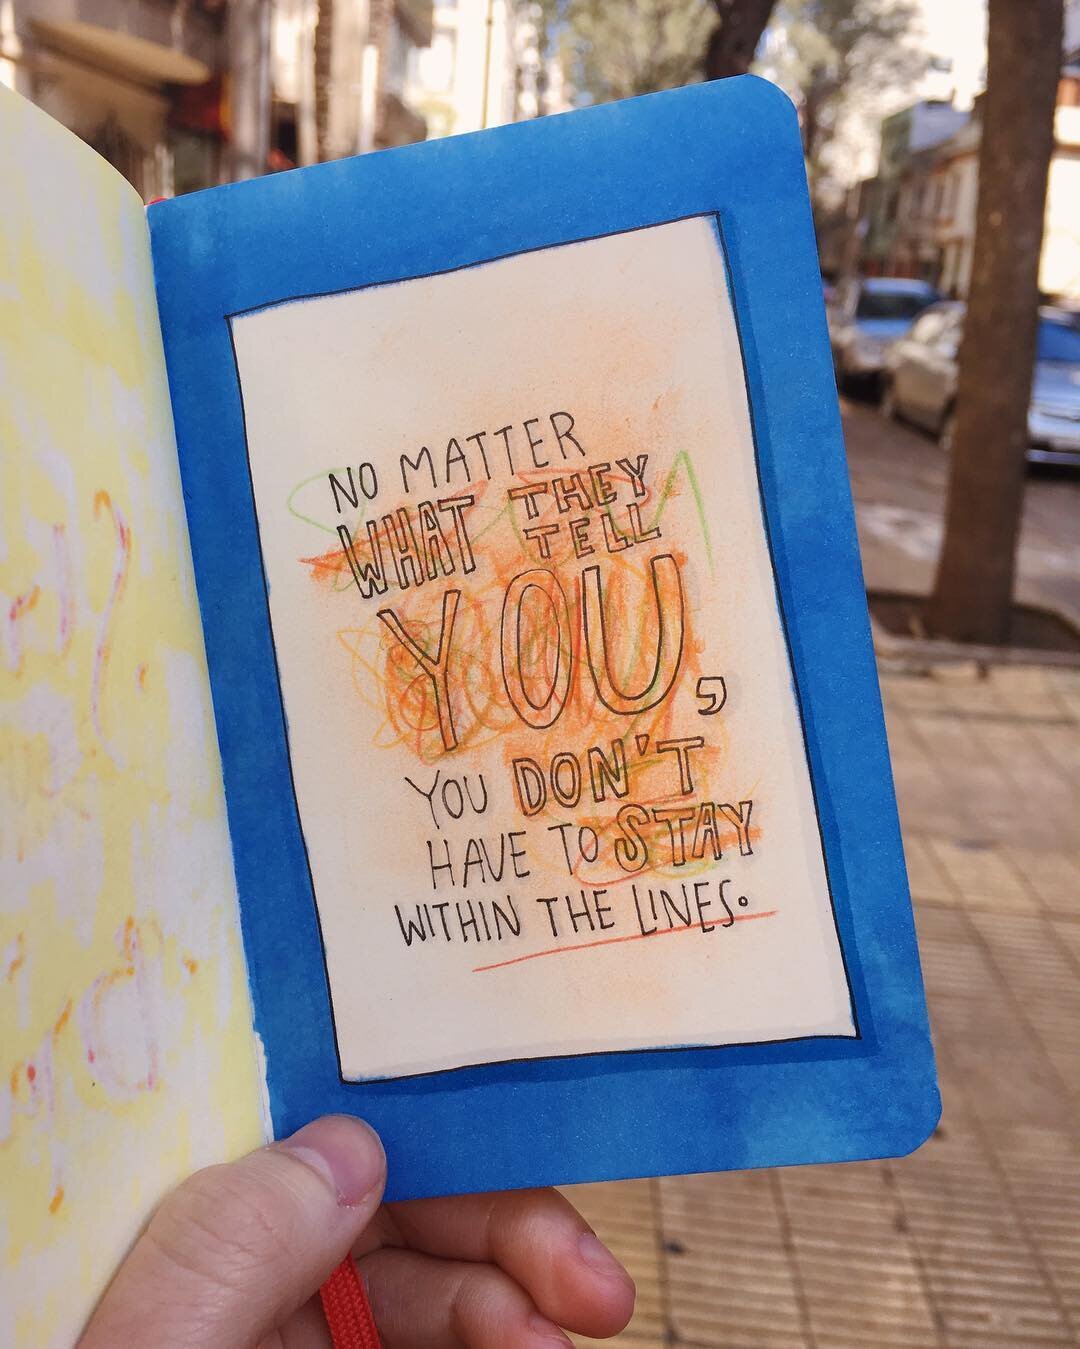 NO MATTER
WHAT THEY
TELL
YOU,
YOU DON'T
HAVE TO STAY
WITHIN THE LINES.